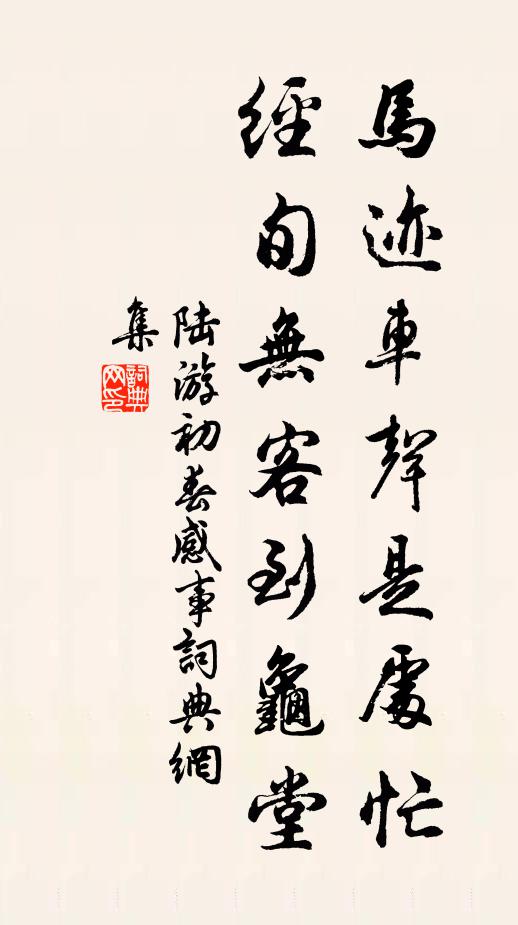 馬迹車聲是處忙
經旬無客到龜堂
陸游初春感事詞典網
集
詞典网印